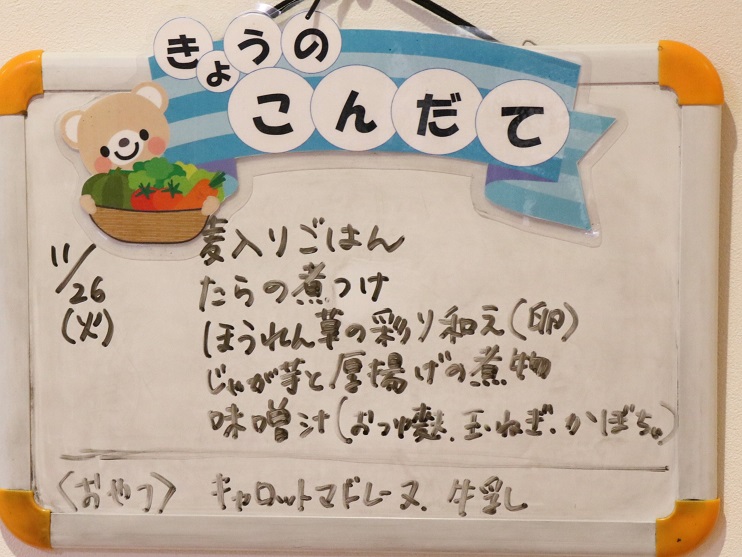 きょうの
こんだて
11/26
(火)
麦入りごはん
たらの煮つけ
ほうれん草の彩り和え(卵)
じゃが芋と厚揚げの煮物
味噌汁(おつゆ麩、玉ねぎ、かぼちゃ)
〈おやつ〉 キャロットマドレーヌ、牛乳